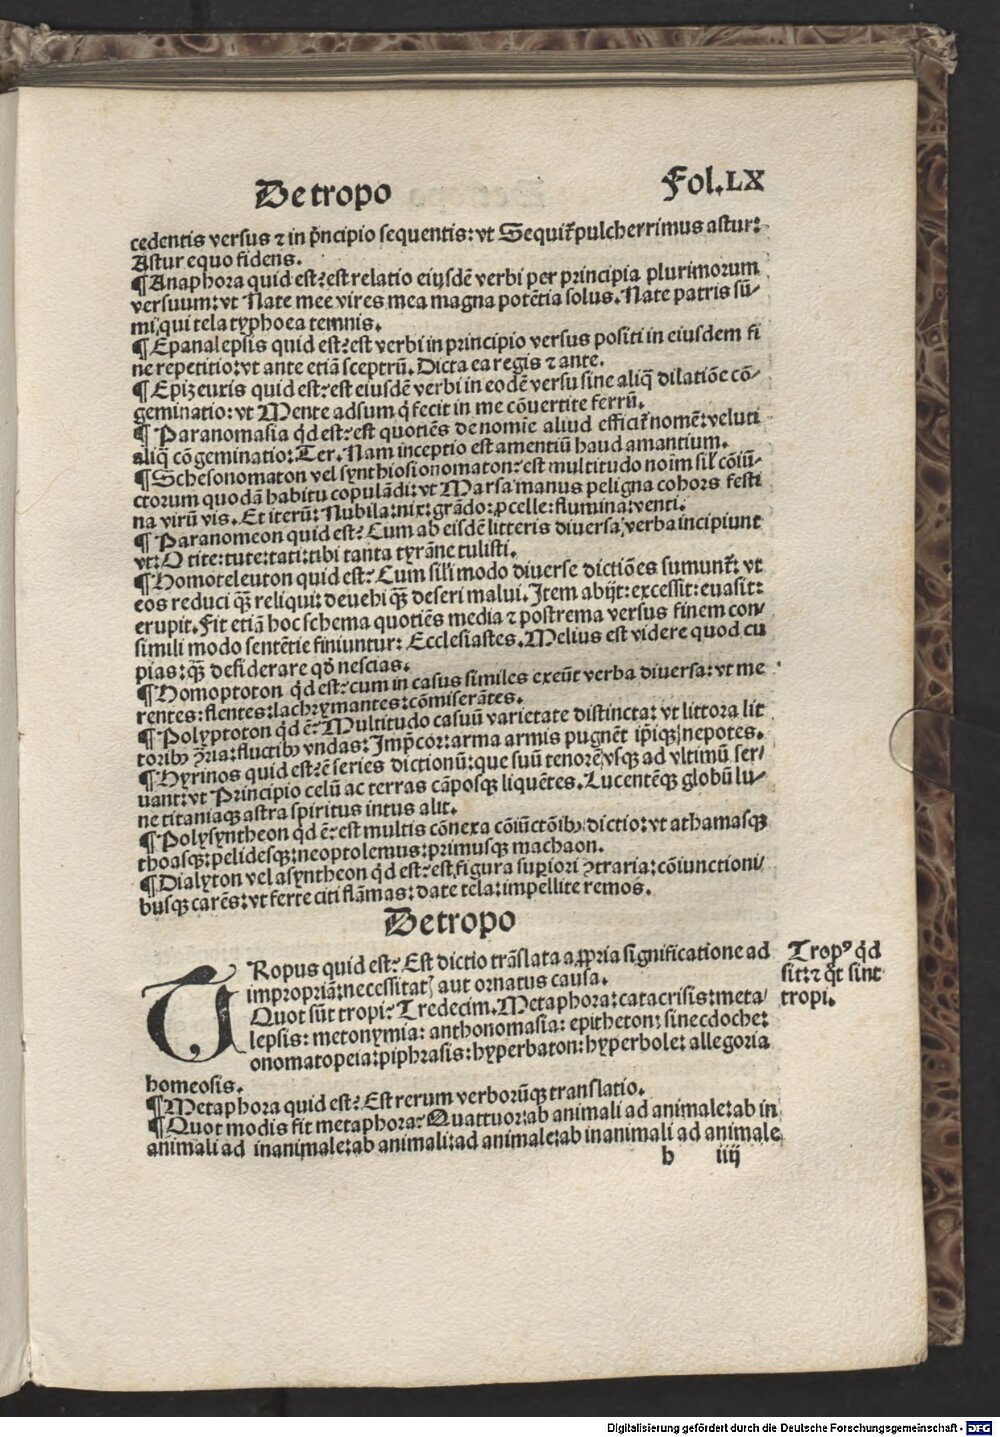 De tropo
Fol.LX
cedentis versus ⁊ in p̃ncipio sequentis: vt Sequit᷑ pulcherrimus astur:
Astur equo fidens.
¶ Anaphora quid est? est relatio eiusdē verbi per principia plurimorum
versuum: vt Nate mee vires mea magna potētia solus. Nate patris sū-
mi qui tela typhoea temnis.
¶ Epanalepsis quid est? est verbi in principio versus positi in eiusdem fi
ne repetitio: vt ante etiā sceptrū. Dicta ea regis ⁊ ante.
¶ Epizeuxis quid est? est eiusdē verbi in eodē versu sine aliq̄ dilatiōe cō-
geminatio: vt Mente adsum q̇ fecit in me cōuertite ferrū.
¶ Paranomasia q̇d est? est quotiēs de nomīe aliud efficit᷑ nomē: veluti
aliq̄ cōgeminatio: Ter. Nam inceptio est amentiū haud amantium.
¶ Schesonomaton vel synthiosionomaton? est multitudo noīm sil̓ cōiū-
ctorum quodā habitu copulādi: vt Marsa manus peligna cohors festi
na virū vis. Et iterū: Nubila: nix: grādo: ꝓcelle: flumina: venti.
¶ Paranomeon quid est? Cum ab eisdē litteris diuersa verba incipiunt
vt: O tite: tute: tati: tibi tanta tyrāne tulisti.
¶ Homoteleuton quid est? Cum sil̓i modo diuerse dictiōes sumunt᷑: vt
eos reduci q̄ꝫ reliqui: deuehi q̄ꝫ deseri malui. Item abijt: excessit: euasit:
erupit. Fit etiā hoc schema quotiēs media ⁊ postrema versus finem con-
simili modo sentētie finiuntur: Ecclesiastes. Melius est videre quod cu
pias: q̄ꝫ desiderare qḋ nescias.
¶ Homoptoton q̇d est? cum in casus similes exeūt verba diuersa: vt me
rentes: flentes: lachrymantes: cōmiserātes.
¶ Polyptoton q̇d ē? Multitudo casuū varietate distincta: vt littora lit
toribꝫ ꝯ̄ria: fluctibꝫ vndas: Imp̄cor: arma armis pugnēt ip̄iqꝫ nepotes.
¶ Hyrinos quid est? ē series dictionū: que suū tenorē vsqꝫ ad vltimū ser-
uant: vt Principio celū ac terras cāposqꝫ liquētes. Lucentēqꝫ globū lu-
ne titaniaqꝫ astra spiritus intus alit.
¶ Polysyntheon q̇d ē? est multis cōnexa cōiūctōibꝫ dictio: vt athamasqꝫ
thoasqꝫ: pelidesqꝫ: neoptolemus: primusqꝫ machaon.
¶ Dialyton vel asyntheon q̇d est? est figura suꝑiori ꝯtraria: cōiunctioni-
busqꝫ carēs: vt ferte citi flāmas: date tela: impellite remos.
De tropo
TRopus quid est? Est dictio trāslata a ꝓpria significatione ad
impropriā: necessitatꝭ aut ornatus causa.
Tropꝰ q̇d
sit: ⁊ q̇t sint
tropi.
Quot sūt tropi? Tredecim. Metaphora: catacrisis: meta-
lepsis: metonymia: anthonomasia: epitheton: sinecdoche:
onomatopeia: piphrasis: hyperbaton: hyperbole: allegoria
homeosis.
¶ Metaphora quid est? Est rerum verborūqꝫ translatio.
¶ Quot modis fit metaphora? Quattuor: ab animali ad animale: ab in
animali ad inanimale: ab animali: ad animale: ab inanimali ad animale
h iiij
Digitalisierung gefördert durch die Deutsche Forschungsgemeinschaft - DFG